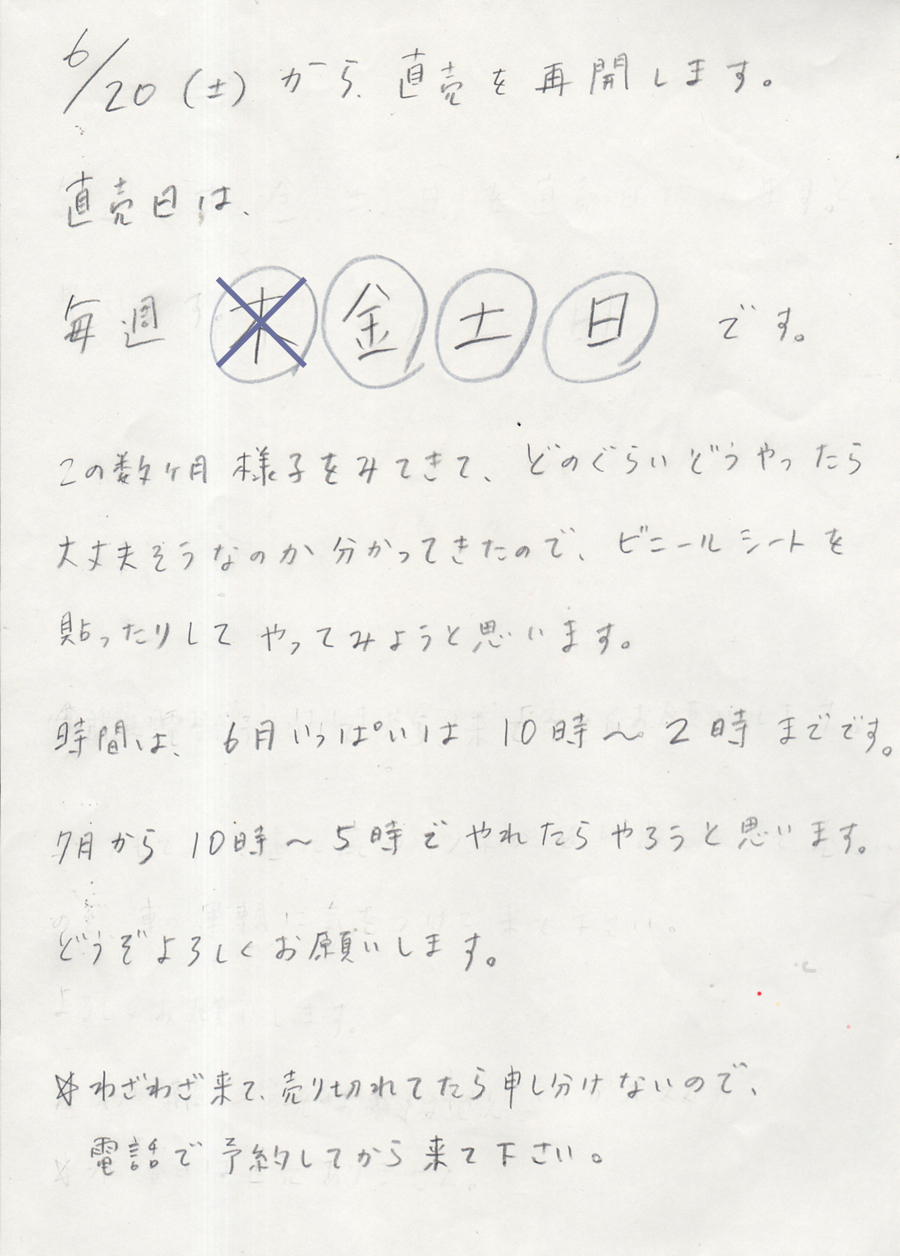 6/20(土)から、直売を再開します。
直売日は、
毎週 木 金 土 日 です。
この数ヶ月 様子をみてきて、どのぐらいどうやったら
大丈夫そうなのか分かってきたので、ビニールシートを
貼ったりして やってみようと思います。
時間は、6月いっぱいは 10時〜2時 までです。
7月から 10時〜5時で やれたらやろうと思います。
どうぞよろしくお願いします。
※わざわざ来て、売り切れてたら申し分けないので、
電話で予約してから来て下さい。